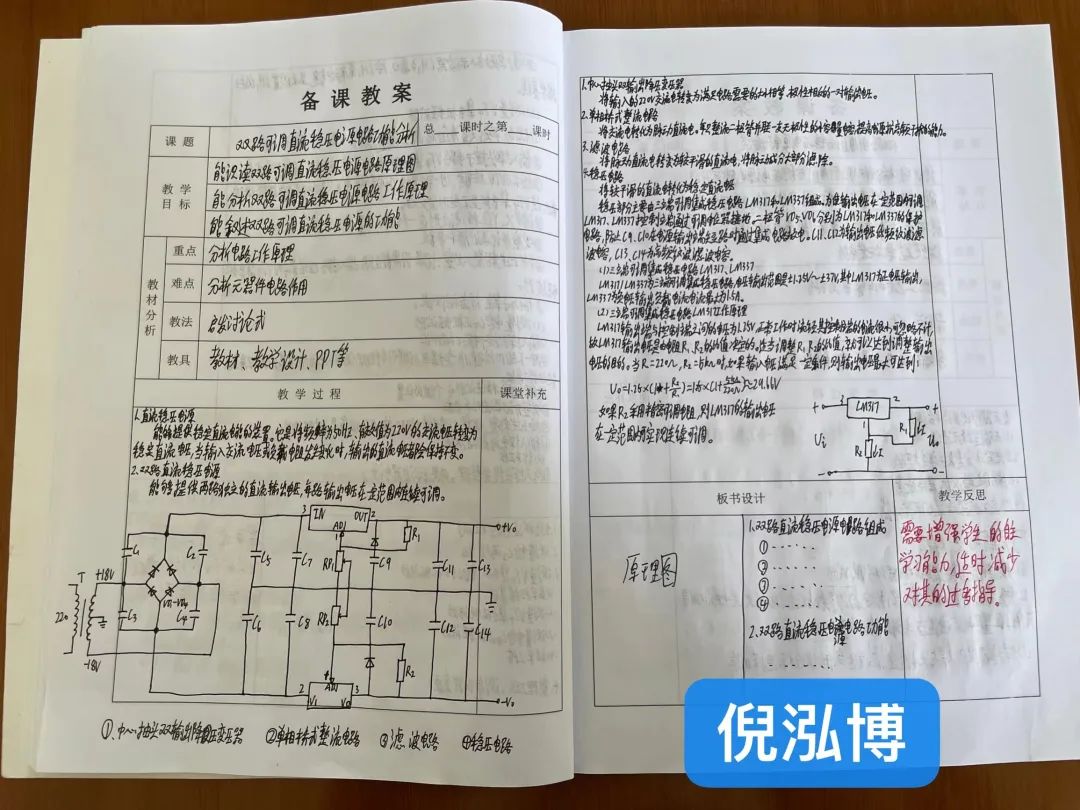 备课教案
课题 双路可调直流稳压电源电路功能分析 总 课时之第 课时
教学目标 能识读双路可调直流稳压电源电路原理图
能分析双路可调直流稳压电源电路工作原理
能叙述双路可调直流稳压电源的功能
教材分析 重点 分析电路工作原理
难点 分析元器件电路作用
教法 启发讨论式
教具 教材、教学设计、PPT等
教学过程 课堂补充
1.直流稳压电源
能够提供稳定直流电能的装置。它是将频率为50Hz、有效值为220V的交流电转变为
稳定直流电压,当输入交流电压或负载电阻发生变化时,输出的直流电压都会保持不变。
2.双路直流稳压电源
能够提供两路独立的直流输出电压,每路输出电压在一定范围内连续可调。
3 IN OUT 2 +Vo
ADJ R1
C1 C2 C5 C7 RP1 C9 C11 C13
T +18V
220 VD1-VD4
C3 C4 C6 C8 RP2 C10 C12 C14
-18V
R2
ADJ
2 Vi Vo 3 -Vo
①.中心抽头双输出降压变压器 ②单相桥式整流电路 ③滤波电路 ④稳压电路
1.中心抽头双输出降压变压器
将输入的220V交流电转变为满足电路需要的大小相等、极性相反的一对输出电压。
2.单相桥式整流电路
将交流电转化为脉动直流电。
3.滤波电路
将脉动直流电转变为较平滑的直流电,将脉动成分大部分滤除。
4.稳压电路
将较平滑的直流电转化为稳定直流电
稳压部分主要由三端可调集成稳压电路LM317和LM337组成。
(1)三端可调集成稳压电路LM317、LM337
LM317、LM337为三端可调集成稳压电路,电压输出范围是±1.25V~±37V,其中LM317为正电压输出,
LM337为负电压输出,负载电流最大为1.5A。
(2)三端可调集成稳压电路LM317工作原理
电压的目的。当R1=220Ω,R2=5kΩ时,如果输入电压满足一定条件,则输出电压最大可达到:
如果R2采用精密可调电阻,则LM317的输出电压
在一定范围内实现连续可调。
+ 3 LM317 2 +
1 R1
Ui Uo
R2
板书设计 教学反思
原理图
1.双路直流稳压电源电路组成
①······
②······
③······
④······
2.双路直流稳压电源电路功能
······
需要增强学生的能
学习能力,适时减少
对其的过多指导。
倪泓博